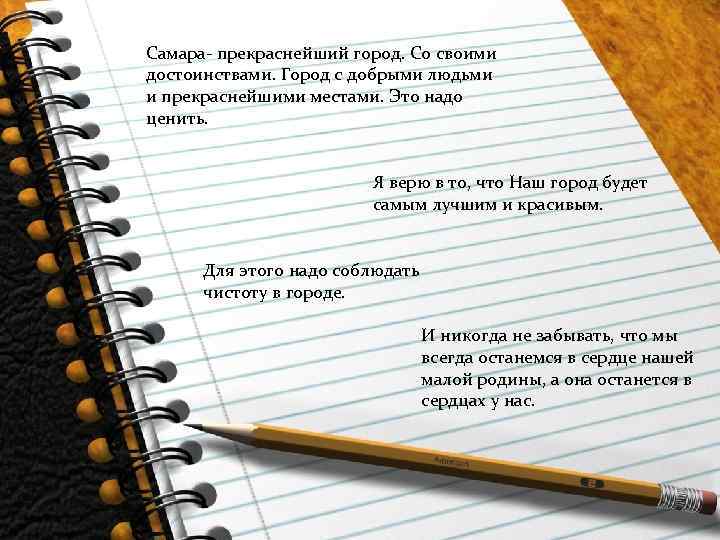 Самара- прекраснейший город. Со своими
достоинствами. Город с добрыми людьми
и прекраснейшими местами. Это надо
ценить.
Я верю в то, что Наш город будет
самым лучшим и красивым.
Для этого надо соблюдать
чистоту в городе.
И никогда не забывать, что мы
всегда останемся в сердце нашей
малой родины, а она останется в
сердцах у нас.